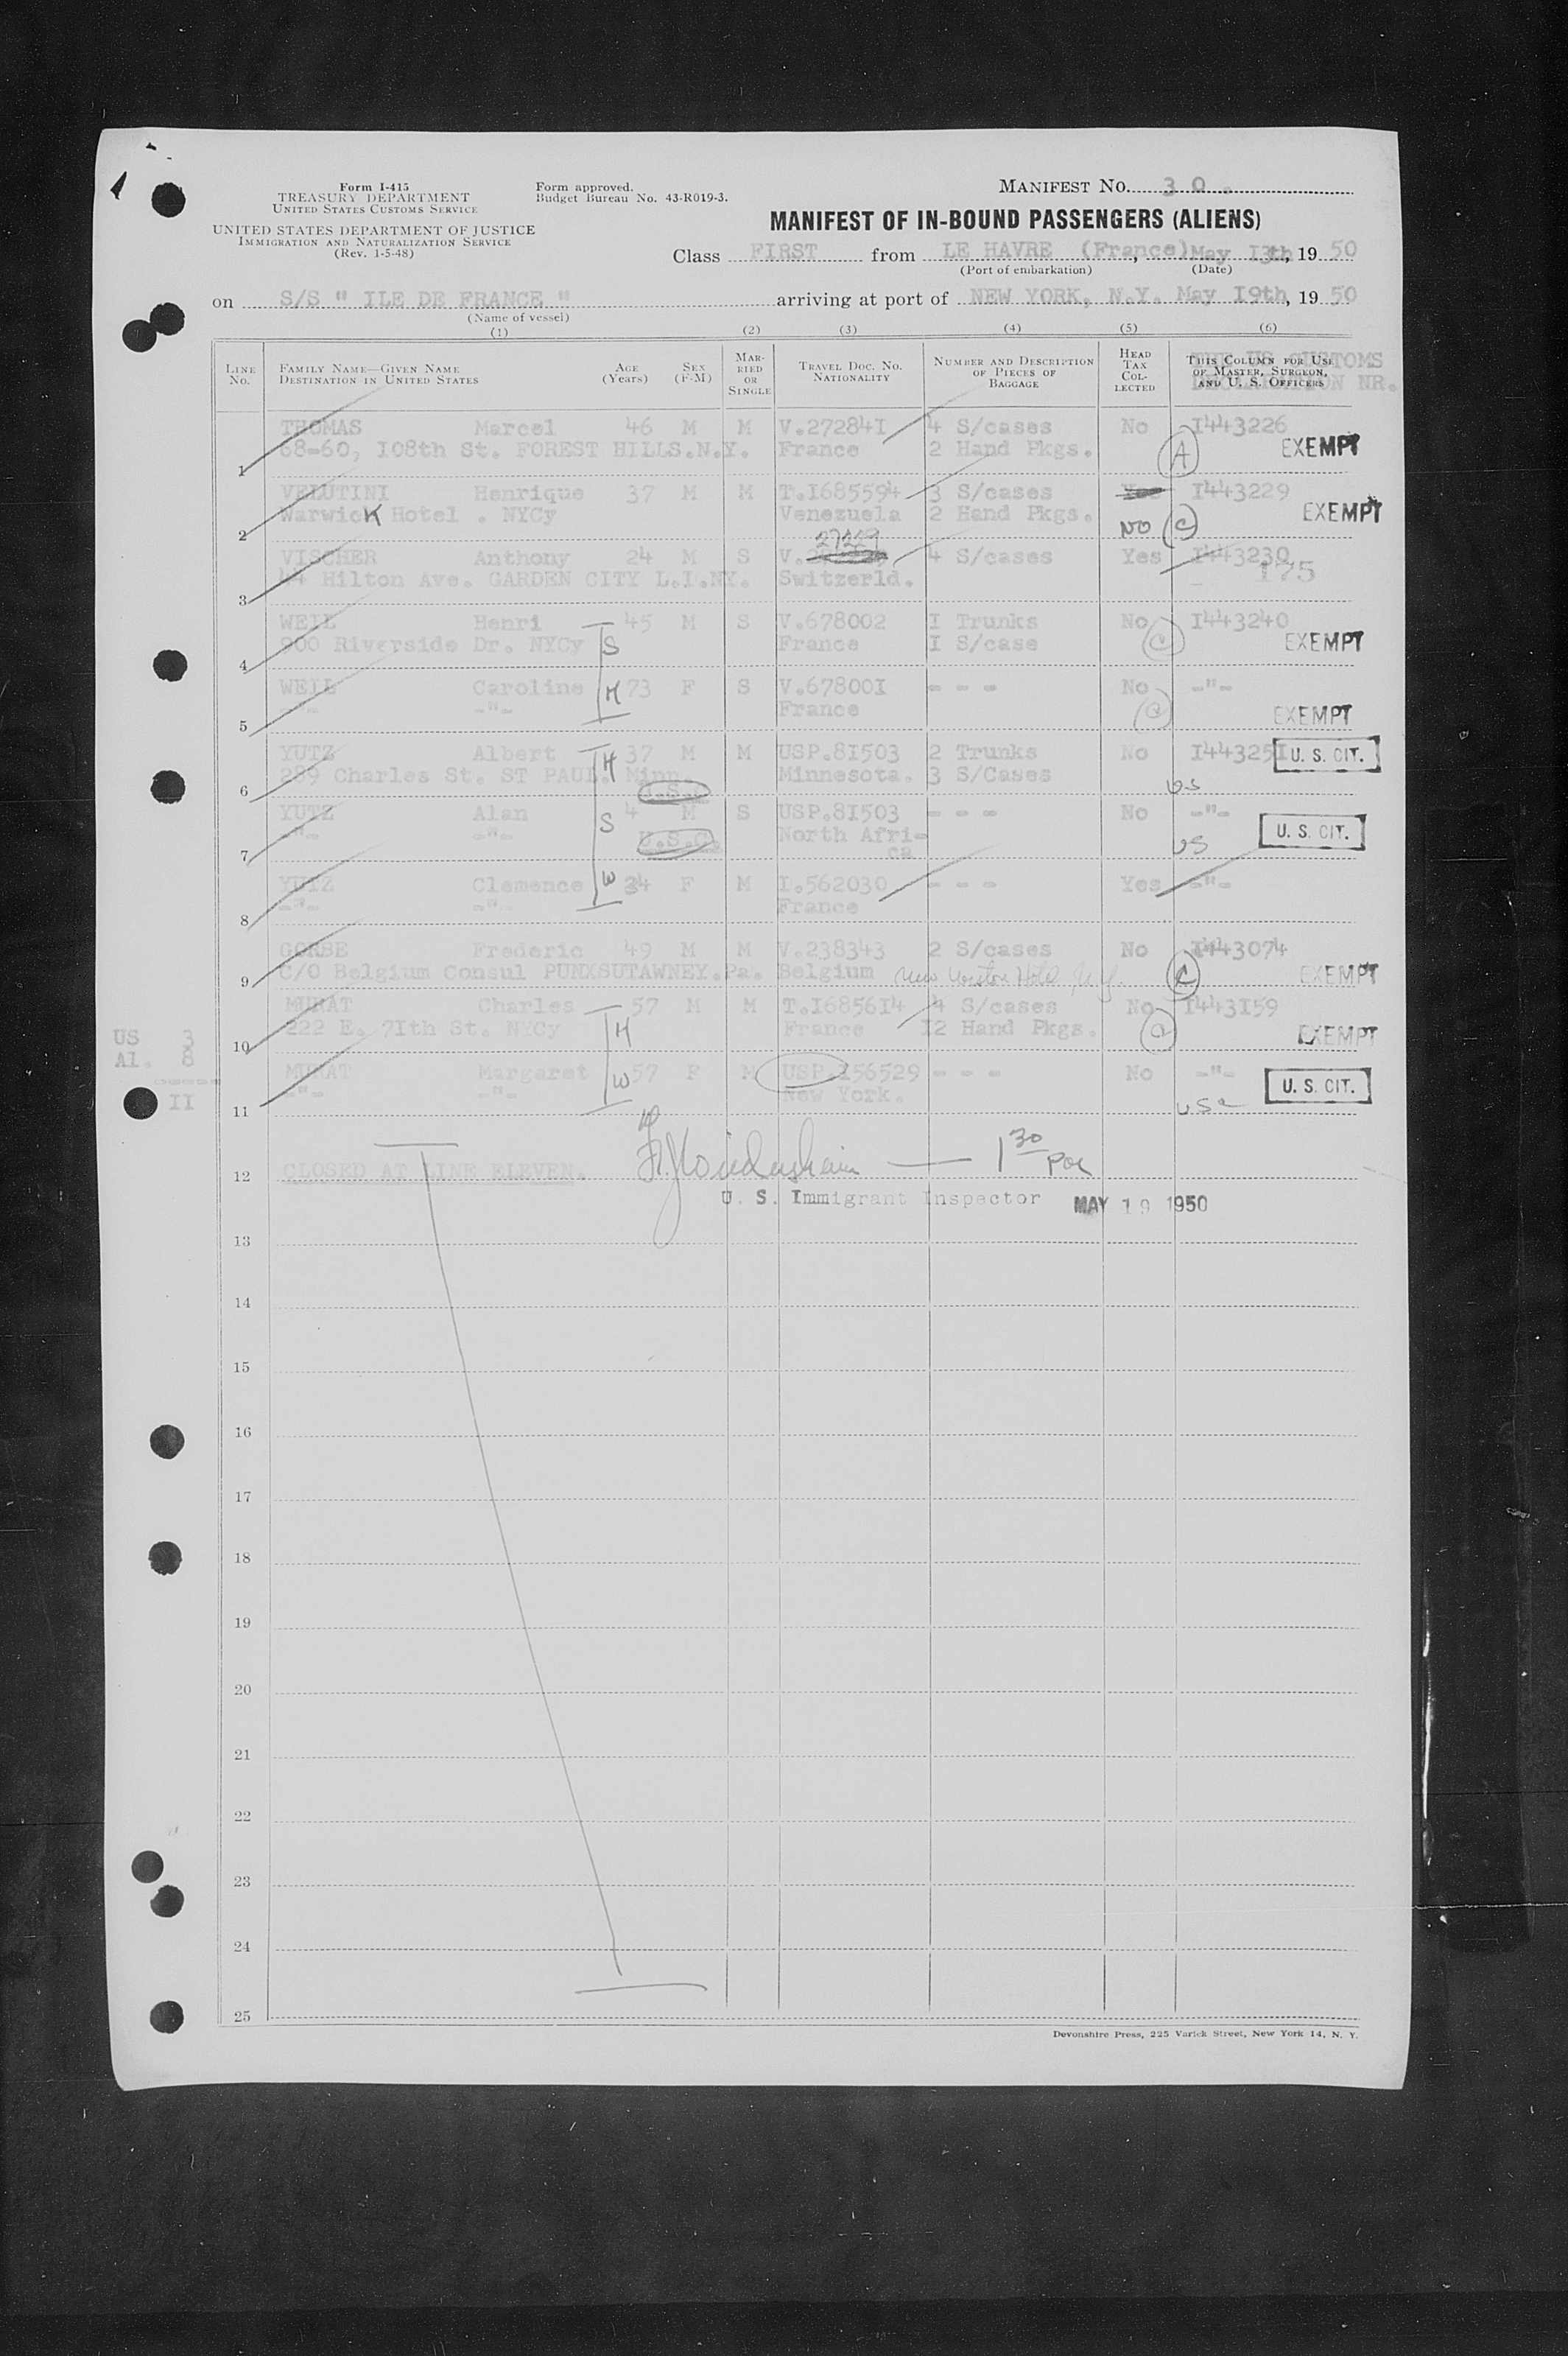 Form I-415
TREASURY DEPARTMENT
UNITED STATES CUSTOMS SERVICE
UNITED STATES DEPARTMENT OF JUSTICE
IMMIGRATION AND NATURALIZATION SERVICE
(Rev. 1-5-48)
Form approved.
Budget Bureau No. 43-R019-3.
MANIFEST NO. 30.
MANIFEST OF IN-BOUND PASSENGERS (ALIENS)
Class FIRST from LE HAVRE (France), May I3th, 19 50
(Port of embarkation) (Date)
on S/S " ILE DE FRANCE " arriving at port of NEW YORK, N.Y. May I9th, 19 50
(Name of vessel)
(1) (2) (3) (4) (5) (6)
LINE No. FAMILY NAME—GIVEN NAME DESTINATION IN UNITED STATES AGE (Years) SEX (F-M) MARRIED OR SINGLE TRAVEL DOC. NO. NATIONALITY NUMBER AND DESCRIPTION OF PIECES OF BAGGAGE HEAD TAX COLLECTED THIS COLUMN FOR USE OF MASTER, SURGEON, AND U. S. OFFICERS
CUSTOMS
NR.
THOMAS Marcel 46 M M V.27284I 4 S/cases No I443226
68-60, I08th St. FOREST HILLS.N.Y. France 2 Hand Pkgs. A EXEMPT
1
VELUTINI Henrique 37 M M T.I685594 3 S/cases I443229
Warwick Hotel . NYCy Venezuela 2 Hand Pkgs. NO C EXEMPT
2
27229
VISCHER Anthony 24 M S V. 4 S/cases Yes I443230
44 Hilton Ave. GARDEN CITY L.I.NY. Switzerld. 175
3
WEIL Henri 45 M S V.678002 I Trunks No I443240
900 Riverside Dr. NYCy S France I S/case C EXEMPT
4
WEIL Caroline M 73 F S V.67800I - - - No -"-
-"- -"- France C EXEMPT
5
YUTZ Albert H 37 M M USP.8I503 2 Trunks No I44325I U. S. CIT.
289 Charles St. ST PAUL. Minn. Minnesota. 3 S/Cases
6 U.S.C US
YUTZ Alan 4 M S USP.8I503 - - - No -"-
-"- -"- S U.S.C. North Afri- U. S. CIT.
7 ca US
YUTZ Clemence W 34 F M I.562030 - - - Yes -"-
-"- -"- France
8
GORBE Frederic 49 M M V.238343 2 S/cases No I443074
C/O Belgium Consul PUNXSUTAWNEY.Pa. Belgium New Hotel N.Y. C EXEMPT
9
MURAT Charles 57 M M T.I6856I4 4 S/cases No I443I59
222 E. 7Ith St. NYCy H France I2 Hand Pkgs. C EXEMPT
10
MURAT Margaret W 57 F M USP.I56529 - - - No -"- U. S. CIT.
-"- -"- New York. USC
11
US 3
Al. 8
II
12 CLOSED AT LINE ELEVEN. 1 30 PM
U. S. Immigrant Inspector MAY 19 1950
13
14
15
16
17
18
19
20
21
22
23
24
25
Devonshire Press, 225 Varick Street, New York 14, N. Y.